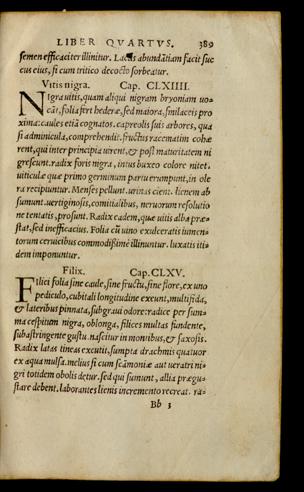 LIBER QVARTVS. 389
semen efficaciter illinitur. Lactis abundātiam facit suc
cus eius, si cum tritico decocto sorbeatur.
Vitis nigra. Cap. CLXIIII.
NIgra uitis, quam aliqui nigram bryoniam uo-
cāt, folia fert hederæ, sed maiora, smilacis pro
xima: caules etiā cognatos. capreolis suis arbores, qua
si adminicula, comprehendit. fructus racematim cohæ
rent, qui inter principia uirent, & post maturitatem ni
grescunt. radix foris nigra, intus buxeo colore nitet.
uiticulæ quæ primo germinum partu erumpunt, in ole
ra recipiuntur. Menses pellunt. urinas cient. lienem ab
sumunt. uertiginosis, comitialibus, neruorum resolutio
ne tentatis, prosunt. Radix eadem, quæ uitis albæ præ-
stat, sed inefficacius. Folia cū uino exulceratis iumen-
torum ceruicibus commodissimè illinuntur. luxatis iti-
dem imponuntur.
Filix. Cap. CLXV.
FIlici folia sine caule, sine fructu, sine flore, ex uno
pediculo, cubitali longitudine exeunt, multifida,
& lateribus pinnata, subgraui odore: radice per sum-
ma cespitum nigra, oblonga, filices multas fundente,
subastringente gustu. nascitur in montibus, & saxosis.
Radix latas tineas excutit, sumpta drachmis quatuor
ex aqua mulsa. melius si cum scāmoniæ aut ueratri ni-
gri totidem obolis detur. sed qui sumunt, allia prægu-
stare debent. laborantes lienis incremento recreat. ra-
Bb 3